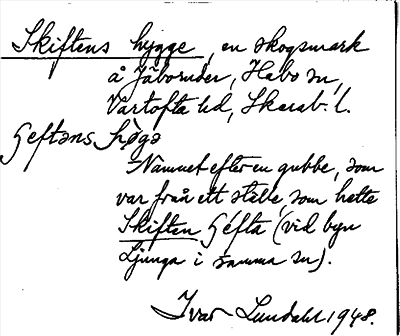 Skiftens hygge, en skogsmark
å Jäboruder, Habo sn,
Vartofta hd, Skarab. l.
Namnet efter en gubbe, som
var från ett ställe, som hette
Skiften (vid byn
Ljunga i samma sn).
Ivar Lundahl 1948.